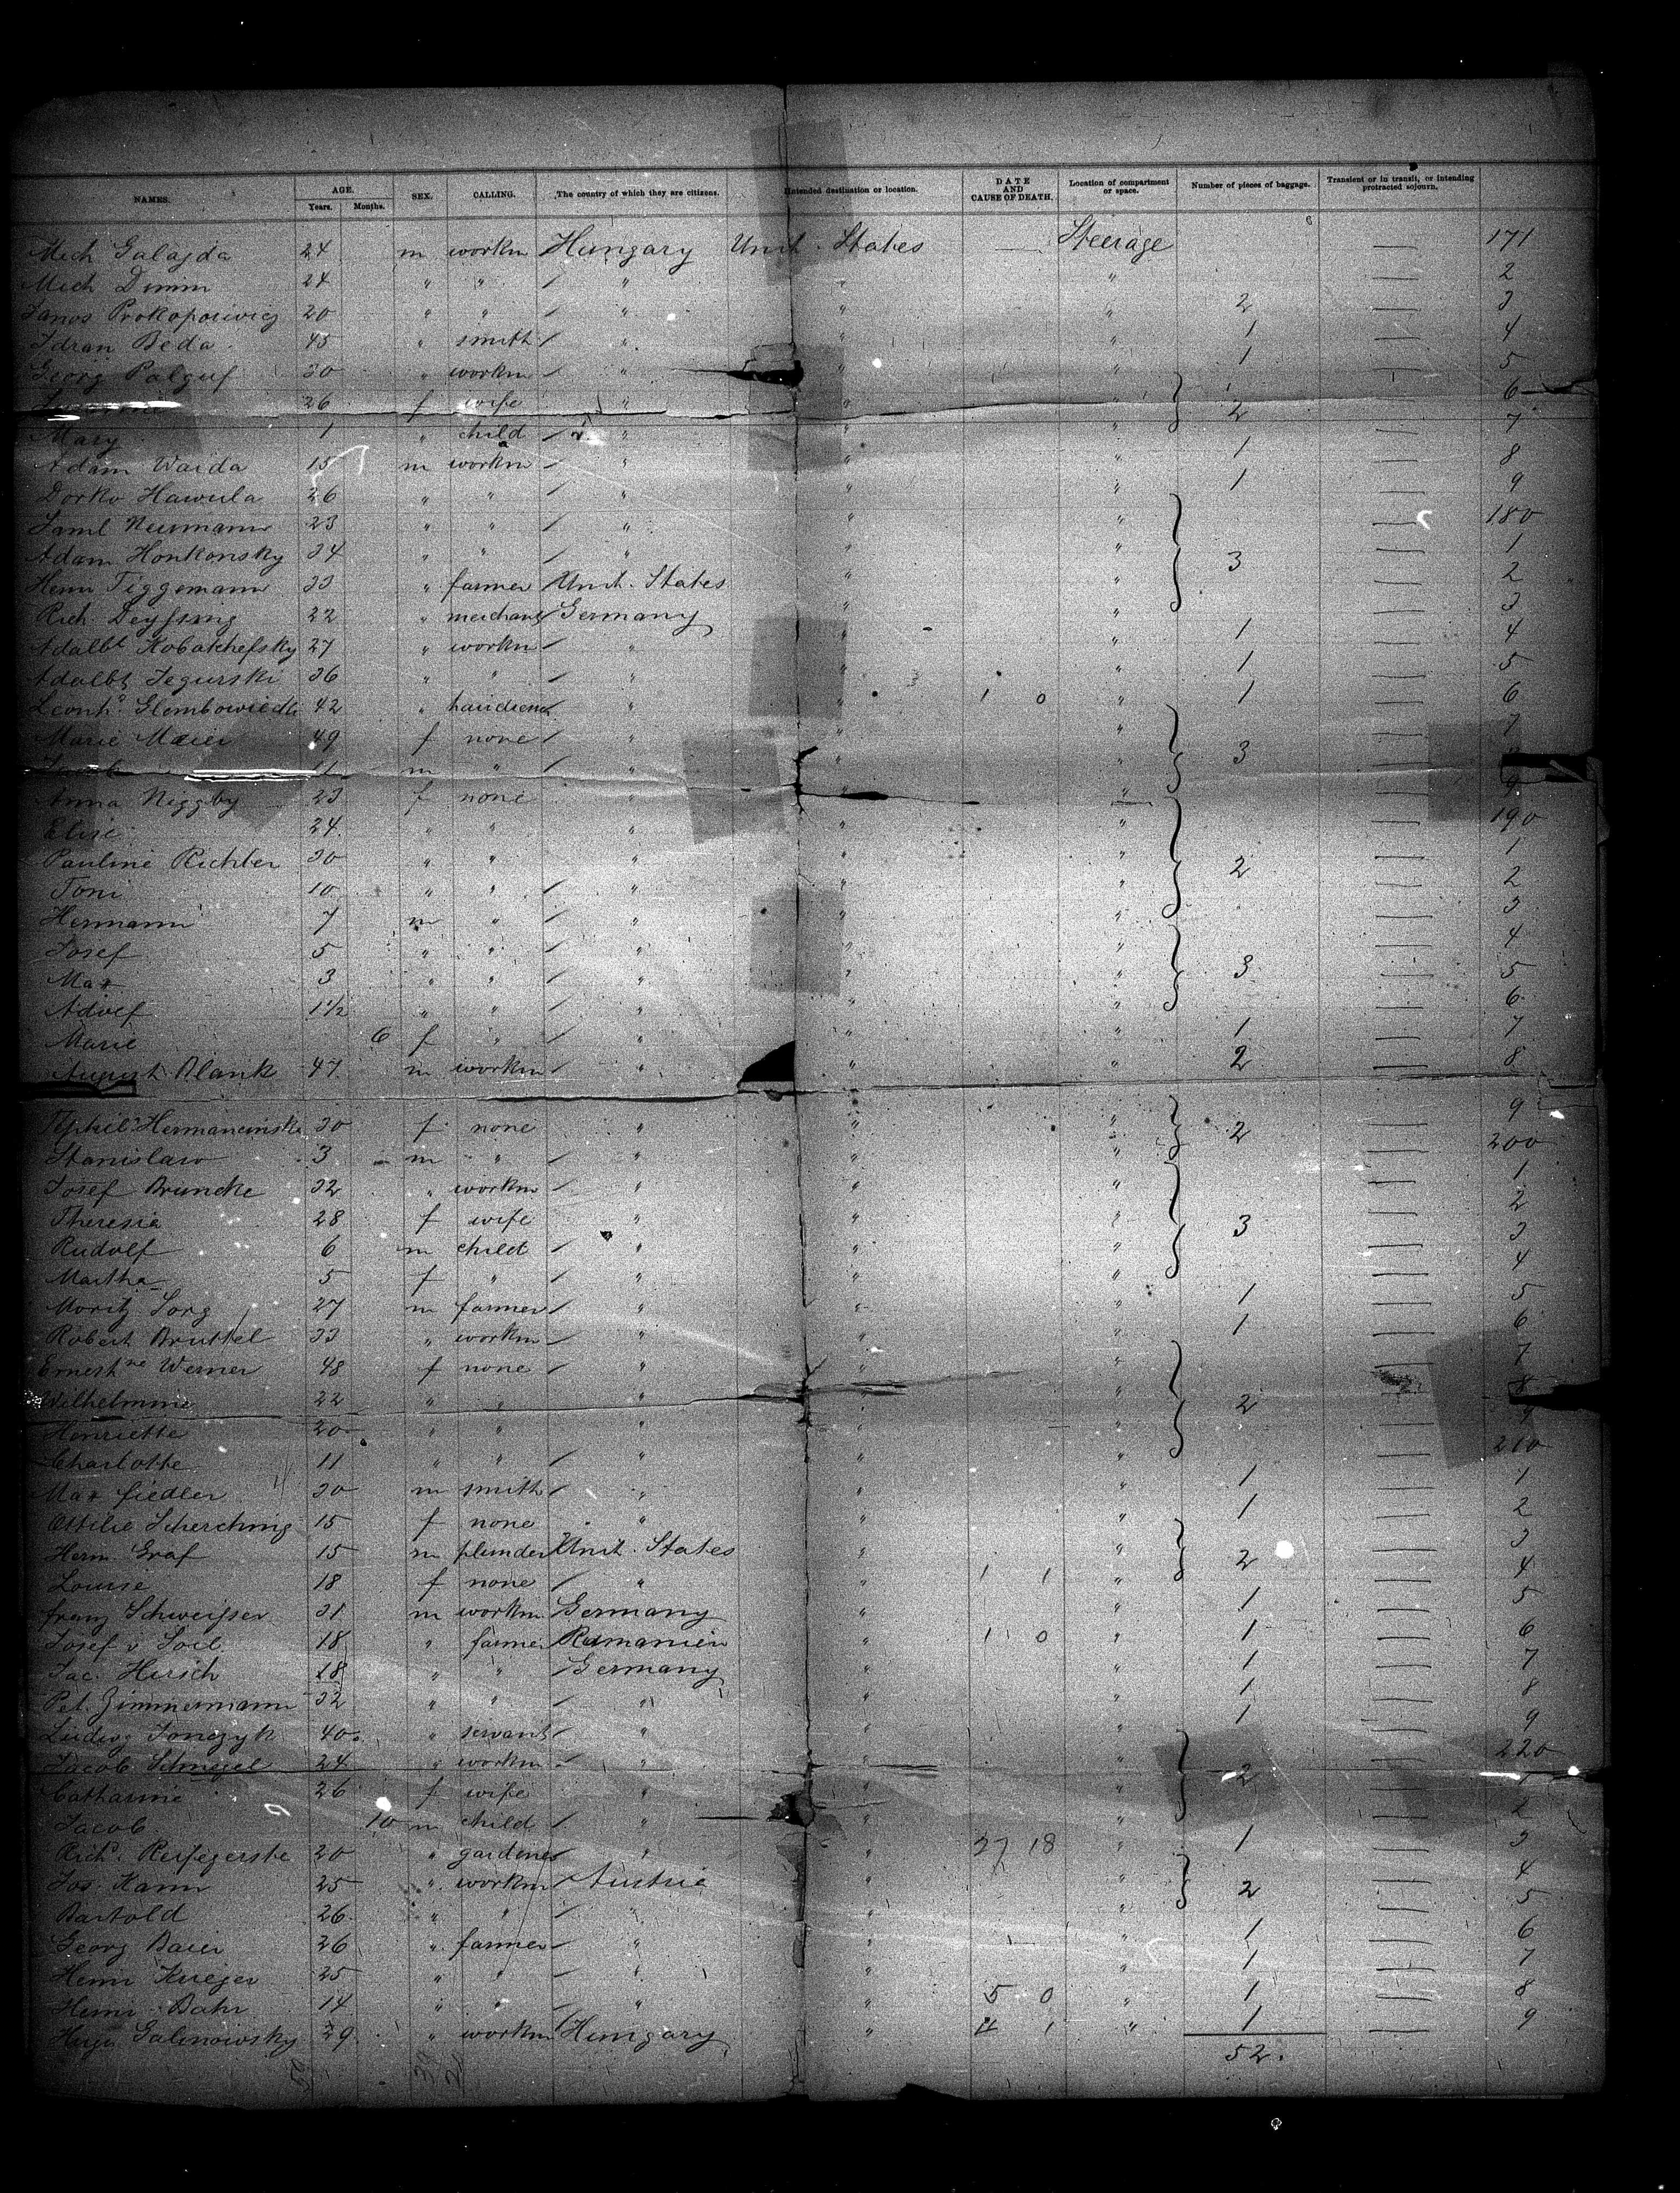 NAMES. AGE. Years. Months. SEX. CALLING. The country of which they are citizens. Intended destination or location. DATE AND CAUSE OF DEATH. Location of compartment or space. Number of pieces of baggage. Transient or in transit, or intending protracted sojourn.
Mich Galajda 24 m workm Hungary Unit. States — Steerage — 171
Mich Dimm 24 " " " " " — 2
Janos Prokopowicz 20 " " " " " 2 — 3
Beda 45 " smith " " " 1 — 4
Georg Palguf 30 " workm " " " 1 — 5
26 f wife " " " — 6
Mary 1 " child " " " 2 — 7
Adam Waida 15 m workm " " " 1 — 8
Dorko Hawula 26 " " " " " 1 — 9
Saml Neumann 23 " " " " " — 180
Adam Honkonsky 34 " " " " " — 1
Henri Tiggemann 33 " farmer Unit. States " " 3 — 2
Rich Deyssing 22 " merchant Germany " " — 3
Adalbt Kobatchefsky 27 " workm " " " 1 — 4
Adalbt Jegurski 36 " " " " " 1 — 5
Leonhd 42 " " " 1 0 " 1 — 6
Marie Maier 49 f none " " " — 7
11 m " " " " 3 —
Anna Niggby 23 f none " " " — 9
Elise 24 " " " " " — 190
Pauline Richter 30 " " " " " — 1
Toni 10 " " " " " 2 — 2
Hermann 7 m " " " " — 3
Josef 5 " " " " " — 4
Max 3 " " " " " 3 — 5
Adolf 1½ " " " " " — 6
Marie 6 f " " " " 1 — 7
August Blank 47 m workm " " " 2 — 8
Hermancinski 30 f none " " " — 9
Stanislaw 3 m " " " " 2 — 200
Josef Bruncke 32 " workm " " " — 1
Theresia 28 f wife " " " — 2
Rudolf 6 m child " " " 3 — 3
Martha 5 f " " " " — 4
Moritz Sorg 27 m farmer " " " 1 — 5
Robert Bruttel 33 " workm " " " 1 — 6
Ernestne Werner 48 f none " " " — 7
Wilhelmine 22 " " " " " — 8
Henriette 20 " " " " " 2 — 9
Charlotte 11 " " " " " — 210
Max Fiedler 30 m smith " " " 1 — 1
Ottilie Scherching 15 f none " " " 1 — 2
Herm. Graf 15 m plumber Unit. States " " — 3
Louise 18 f none " " 1 1 " 2 — 4
Franz Schweisser 31 m workm Germany " " 1 — 5
Josef v Soil 18 " farmer Rumanien " 1 0 " 1 — 6
Jac. Hirsch 18 " " Germany " " 1 — 7
Pet. Zimmermann 32 " " " " " 1 — 8
Ludwig Jonczyk 40 " servant " " " 1 — 9
Jacob Schmegel 24 " workm " " " — 220
Catharine 26 f wife " " " 2 — 1
Jacob 10 m child " " " — 2
Richd. Reifegerste 20 " gardener " " 27 18 " 1 — 3
Jos. Kann 25 " workm Austria " " — 4
Bartold 26 " " " " " 2 — 5
Georg Baier 26 " farmer " " " 1 — 6
Henri Krieger 25 " " " " " 1 — 7
Henri Bahr 14 " " " " 5 0 " 1 — 8
Galinowsky 29 " workm Hungary " 11 1 " 1 — 9
52.